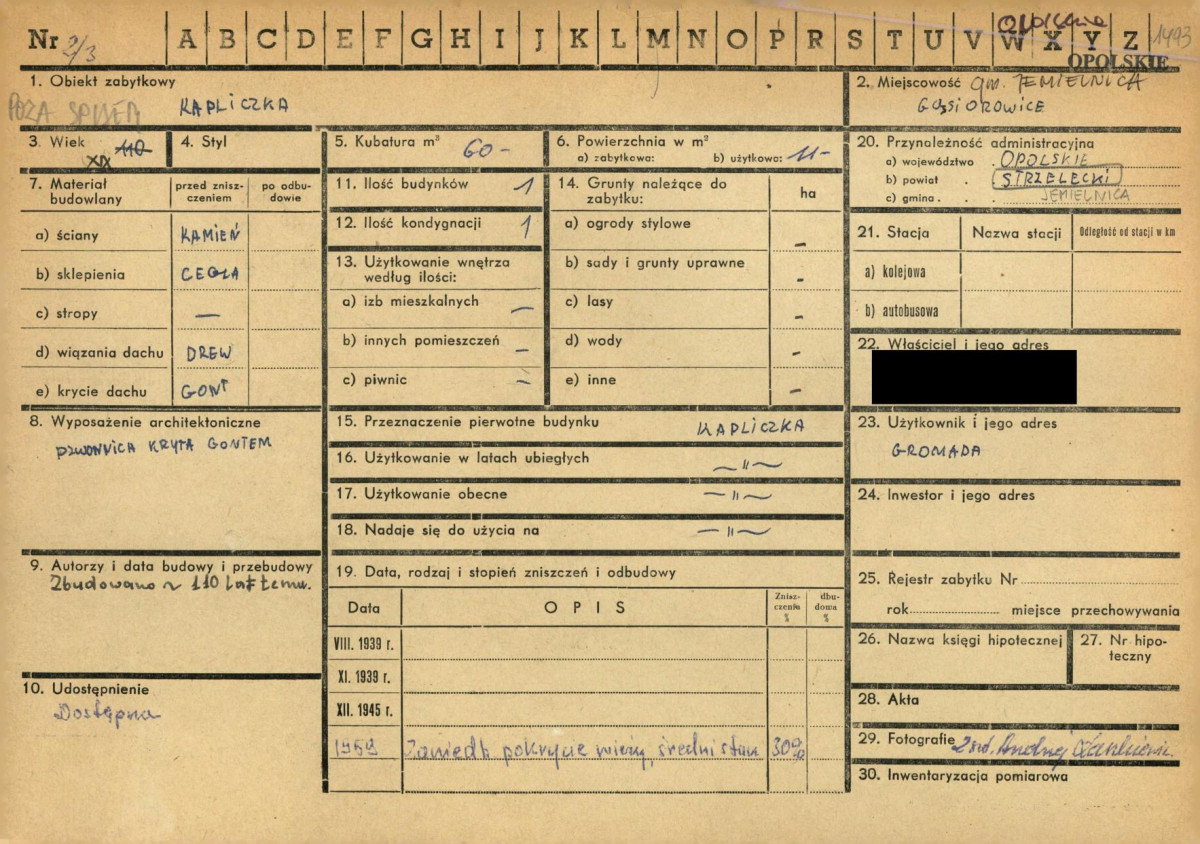 Nr 2/3 A B C D E F G H I J K L M N O P R S T U V W X Y Z 1493
Opolskie
OPOLSKIE
1. Obiekt zabytkowy
POZA SPISEM KAPLICZKA
2. Miejscowość gm. JEMIELNICA
GĄSIOROWICE
3. Wiek 110
XIX
4. Styl
5. Kubatura m³ 60-
6. Powierzchnia w m²
a) zabytkowa: b) użytkowa: 11-
7. Materiał budowlany
przed znisz-
czeniem
po odbu-
dowie
a) ściany KAMIEŃ
b) sklepienia CEGŁA
c) stropy —
d) wiązania dachu DREW
e) krycie dachu GONT
8. Wyposażenie architektoniczne
DZWONNICA KRYTA GONTEM
9. Autorzy i data budowy i przebudowy
Zbudowano ~ 110 lat temu.
10. Udostępnienie
Dostępna
11. Ilość budynków 1
12. Ilość kondygnacji 1
13. Użytkowanie wnętrza
według ilości:
a) izb mieszkalnych —
b) innych pomieszczeń —
c) piwnic —
14. Grunty należące do
zabytku:
ha
a) ogrody stylowe —
b) sady i grunty uprawne —
c) lasy —
d) wody —
e) inne —
15. Przeznaczenie pierwotne budynku KAPLICZKA
16. Użytkowanie w latach ubiegłych —"—
17. Użytkowanie obecne —"—
18. Nadaje się do użycia na —"—
19. Data, rodzaj i stopień zniszczeń i odbudowy
Data OPIS
Znisz-
czenia
%
dbu-
dowa
%
VIII. 1939 r.
XI. 1939 r.
XII. 1945 r.
1959 Zaniedb. pokrycie wieży, średni stan 30%
20. Przynależność administracyjna
a) województwo . OPOLSKIE
b) powiat . STRZELECKI
c) gmina . . JEMIELNICA
21. Stacja Nazwa stacji Odległość od stacji w km
a) kolejowa
b) autobusowa
22. Właściciel i jego adres
23. Użytkownik i jego adres
GROMADA
24. Inwestor i jego adres
25. Rejestr zabytku Nr
rok miejsce przechowywania
26. Nazwa księgi hipotecznej
27. Nr hipo-
teczny
28. Akta
29. Fotografie
30. Inwentaryzacja pomiarowa